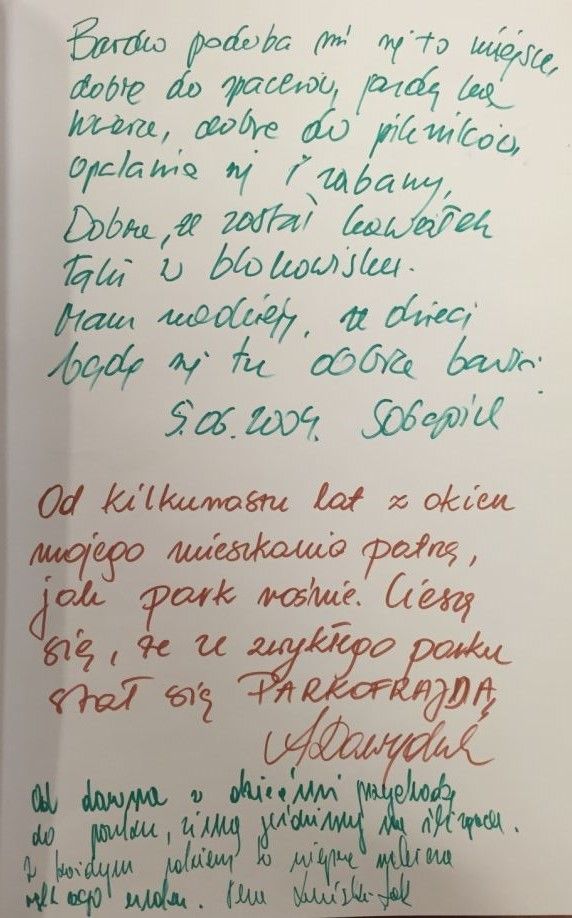 Bardzo podoba mi się to miejsce,
dobre do spacerów, jazdy na
dobre do pikników,
opalania się i zabawy,
Dobrze, że został kawałek
taki w blokowisku.
Mam nadzieję, że dzieci
będą się tu dobrze bawić
5.06.2004. Sobopiek
Od kilkunastu lat z okien
mojego mieszkania patrzę,
jak park rośnie. Cieszę
się, że ze zwykłego parku
stał się PARKOFRAJDĄ,
ADawydzik
Od dawna z dziećmi przychodzę
do parku, zimą jeździmy na
Z każdym rokiem to miejsce nabiera
uroku.